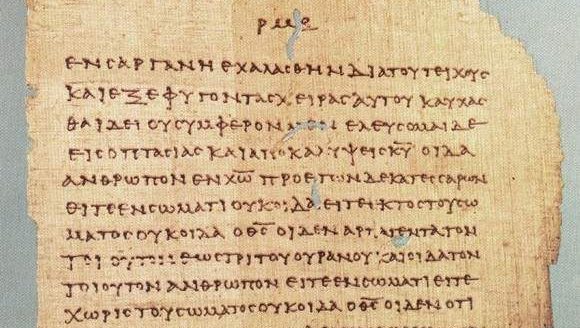 ΡΜΕ
ΕΝ ϹΑΡΓΑΝΗ ΕΧΑΛΑϹΘΗΝ ΔΙΑ ΤΟΥ ΤΕΙΧΟΥϹ
ΚΑΙ ΕΞΕΦΥΓΟΝ ΤΑϹ ΧΕΙΡΑϹ ΑΥΤΟΥ ΚΑΥΧΑϹ
ΘΑΙ ΔΕΙ ΟΥ ϹΥΜΦΕΡΟΝ ΜΕΝ ΕΛΕΥϹΟΜΑΙ ΔΕ
ΕΙϹ ΟΠΤΑϹΙΑϹ ΚΑΙ ΑΠΟΚΑΛΥΨΕΙϹ Κ̅Υ̅ ΟΙΔΑ
ΑΝΘΡΩΠΟΝ ΕΝ Χ̅Ω̅ ΠΡΟ ΕΤΩΝ ΔΕΚΑΤΕϹϹΑΡΩΝ
ΕΙΤΕ ΕΝ ϹΩΜΑΤΙ ΟΥΚ ΟΙΔΑ ΕΙΤΕ ΕΚΤΟϹ ΤΟΥ ϹΩ
ΜΑΤΟϹ ΟΥΚ ΟΙΔΑ Ο Θ̅Ϲ̅ ΟΙΔΕΝ ΑΡΠΑΓΕΝΤΑ ΤΟΝ
ΤΟΙΟΥΤΟΝ ΕΩϹ ΤΡΙΤΟΥ ΟΥΡΑΝΟΥ ΚΑΙ ΟΙΔΑ ΤΟΝ
ΤΟΙΟΥΤΟΝ ΑΝΘΡΩΠΟΝ ΕΙΤΕ ΕΝ ϹΩΜΑΤΙ ΕΙΤΕ
ΧΩΡΙϹ ΤΟΥ ϹΩΜΑΤΟϹ ΟΥΚ ΟΙΔΑ Ο Θ̅Ϲ̅ ΟΙΔΕΝ ΟΤΙ